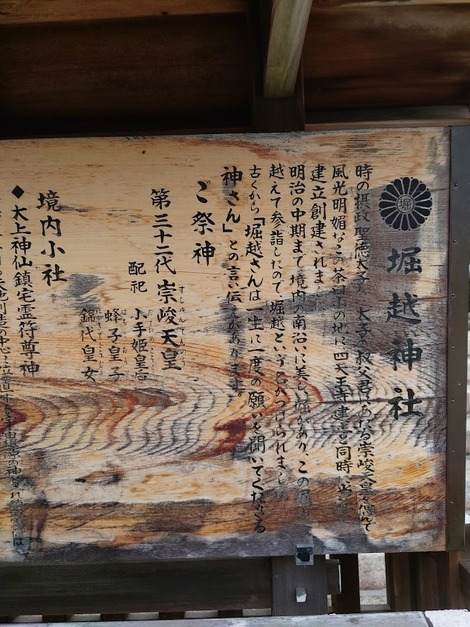 堀越神社
時の摂政聖徳太子 太子の叔父君にあたる崇峻天皇を偲んで
風光明媚なこの茶臼山の地に四天王寺建立と同時に
建立創建されま
明治の中期まで境内の南沿に美しい堀があり、この堀を
越えて参詣したので堀越という名が付けられまし
古くから「堀越さんは一生に一度の願いを聞いてくださる
神さん」との言い伝えがあります
ご祭神
第三十二代 崇峻天皇
配祀 小手姫皇后
蜂子皇子
錦代皇女
境内小社
◆太上神仙鎮宅霊符尊神